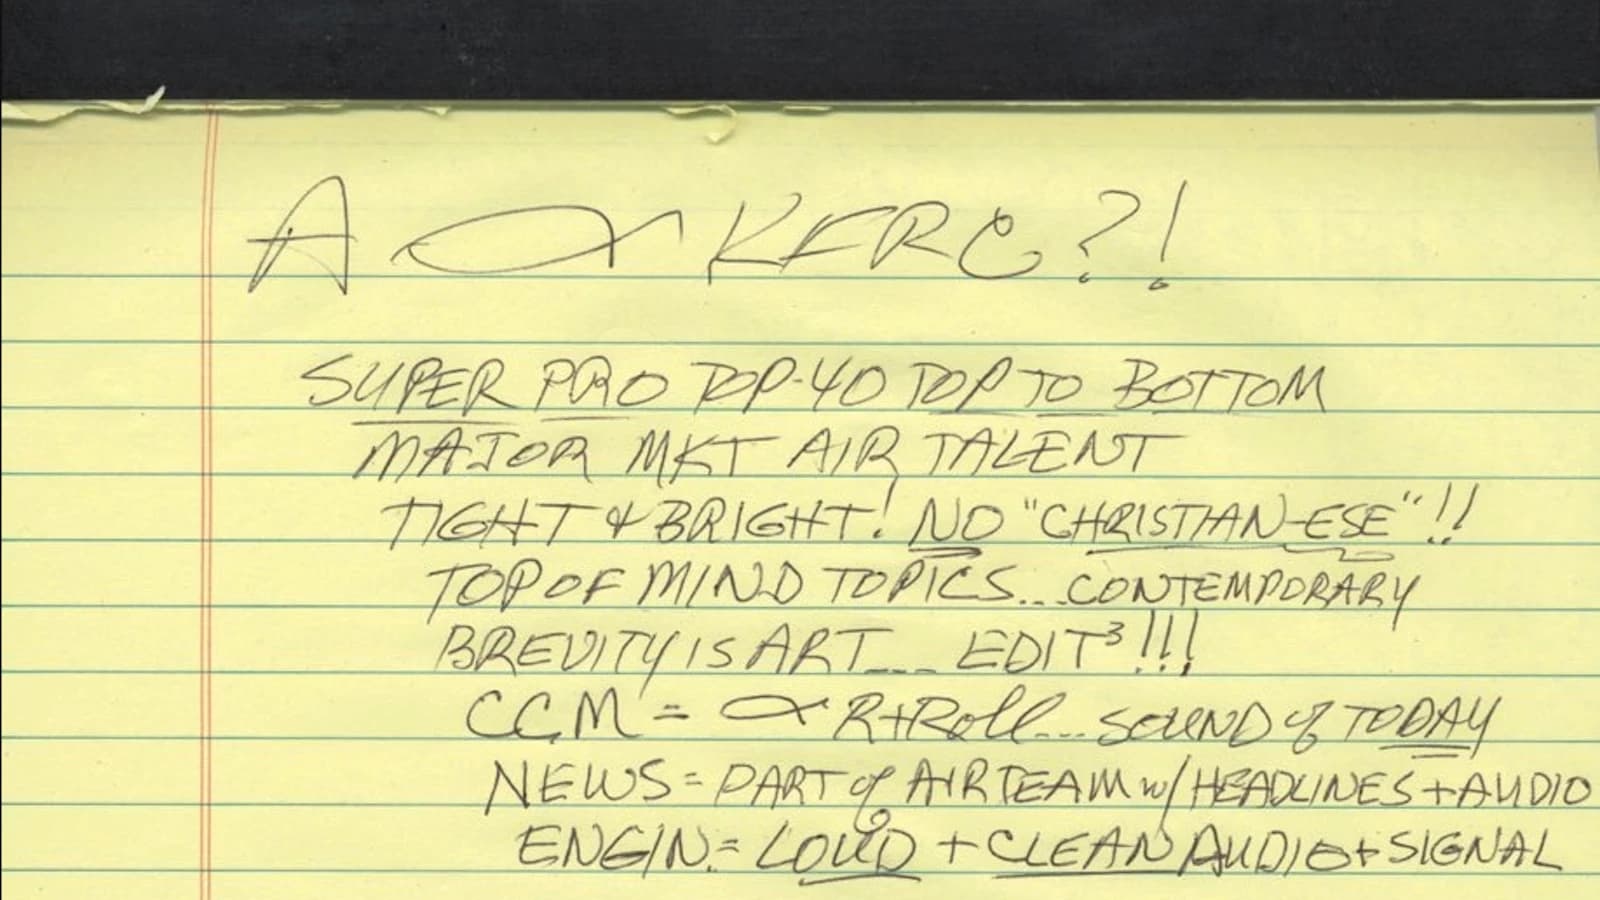 A KFRC?!
SUPER PRO TOP-40 TOP TO BOTTOM
MAJOR MKT AIR TALENT
TIGHT & BRIGHT! NO "CHRISTIAN-ESE"!!
TOP OF MIND TOPICS...CONTEMPORARY
BREVITY IS ART.... EDIT³!!!
CCM = R+Roll.... SOUND of TODAY
NEWS = PART of AIR TEAM w/ HEADLINES + AUDIO
ENGIN. = LOUD + CLEAN AUDIO + SIGNAL